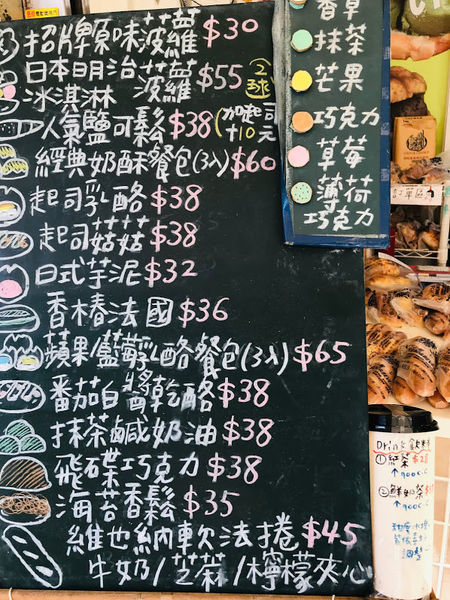 招牌原味菠蘿 $30
日本明治菠蘿 $55 2球
冰淇淋
人氣鹽可鬆 $38 (加起司+10元
經典奶酥餐包(3入) $60
起司乳酪 $38
起司菇菇 $38
日式芋泥 $32
香椿法國 $36
蘋果/藍莓乳酪餐包(3入) $65
番茄醬乾酪 $38
抹茶鹹奶油 $38
飛碟巧克力 $38
海苔香鬆 $35
維也納軟法捲 $45
牛奶/芝麻/檸檬夾心
香草
抹茶
芒果
巧克力
草莓
薄荷
巧克力
Drinks 飲料
①紅茶 $25
↑900c.c
②鮮奶茶
↑900c.c